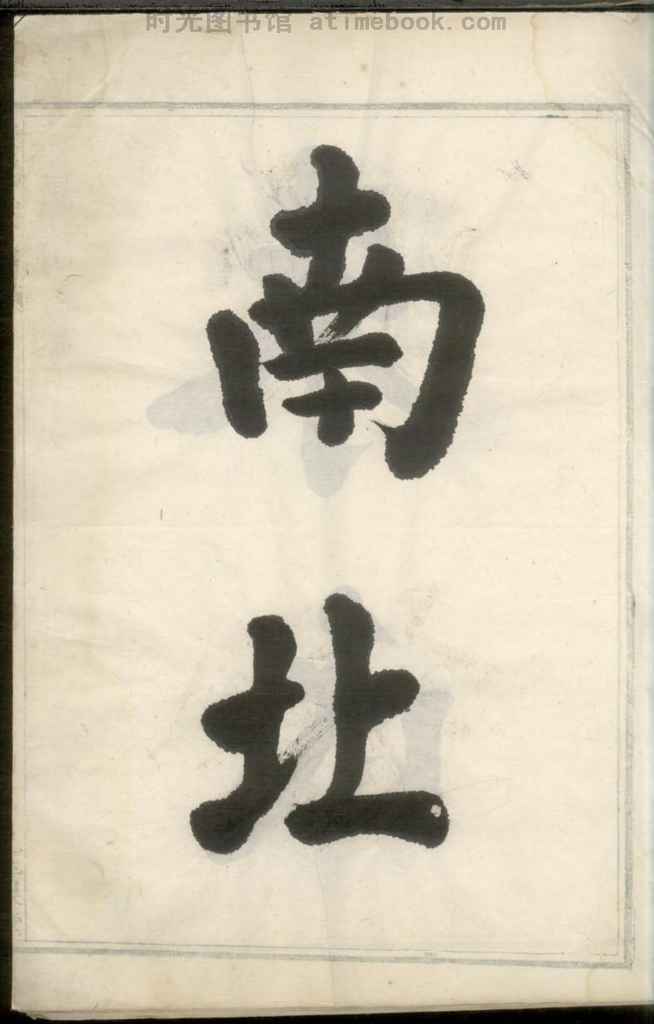 时光图书馆 atimebook.com
南
北